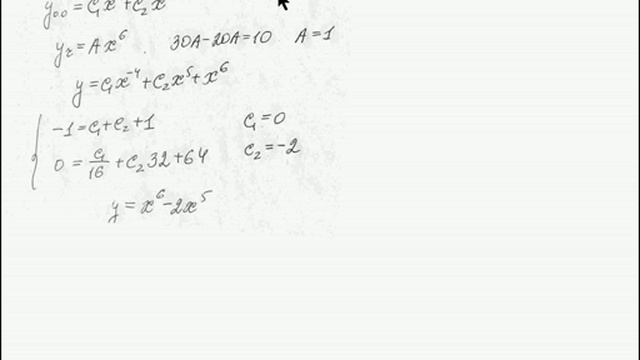 y₀₀ = C₁x + C₂x
yᵣ = Ax⁶ . 30A-20A=10 A=1
y = C₁x⁻⁴ + C₂x⁵ + x⁶
-1 = C₁ + C₂ + 1 C₁=0
0 = C₁/16 + C₂32 + 64 C₂=-2
y = x⁶ - 2x⁵